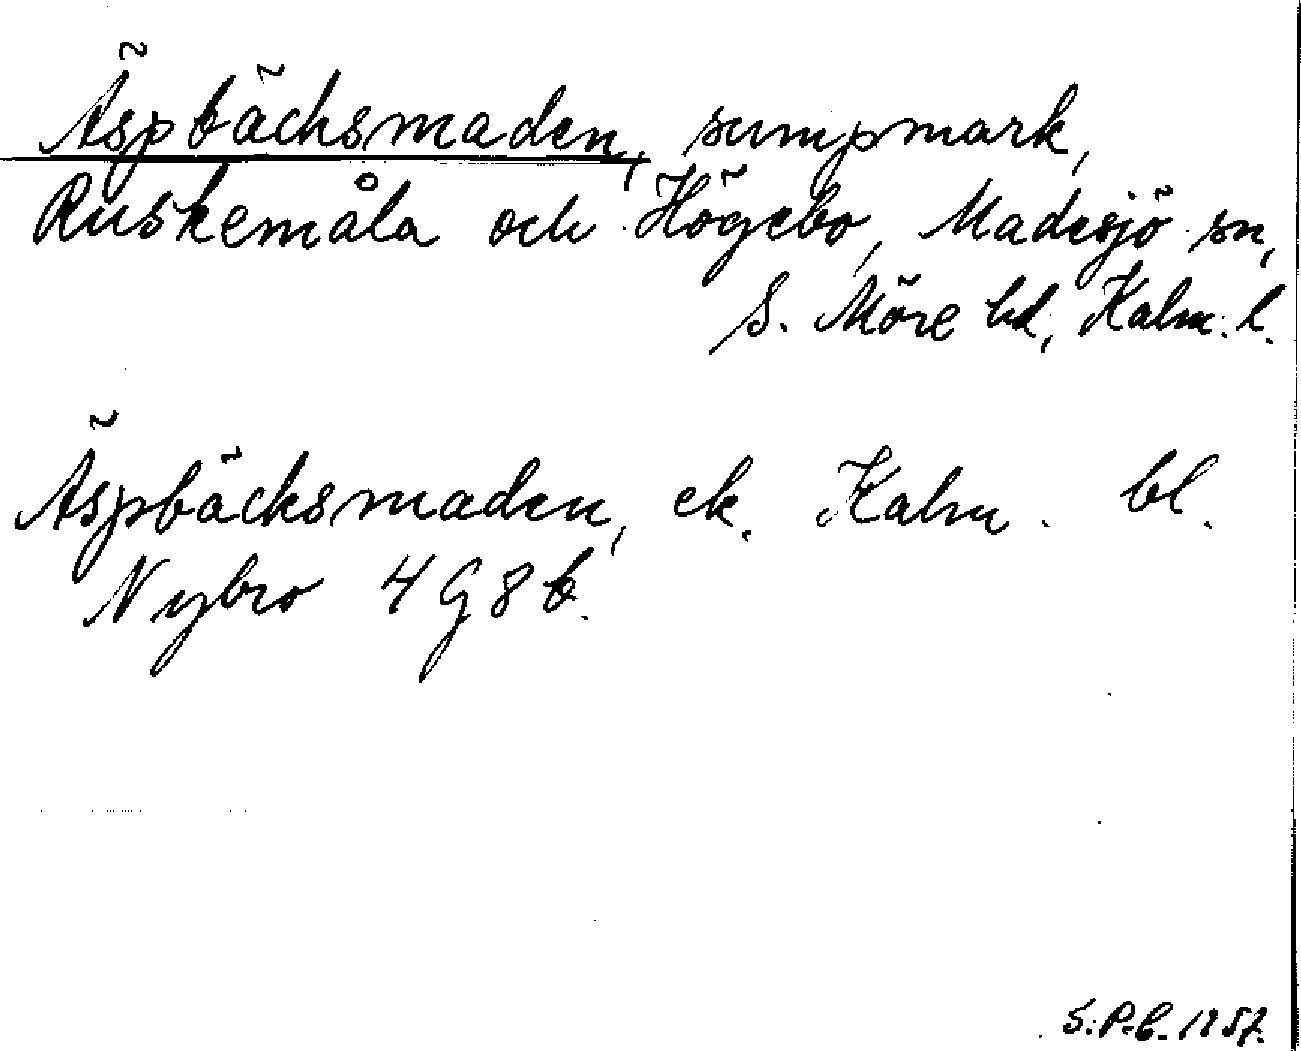 Äspbäcksmaden, sumpmark,
Ruskemåla och Högebo, Madesjö sn,
S. Möre hd, Kalm. l.
Äspbäcksmaden, ek. Kalm. bl.
Nybro 4G8b.
S.P-b. 1957.